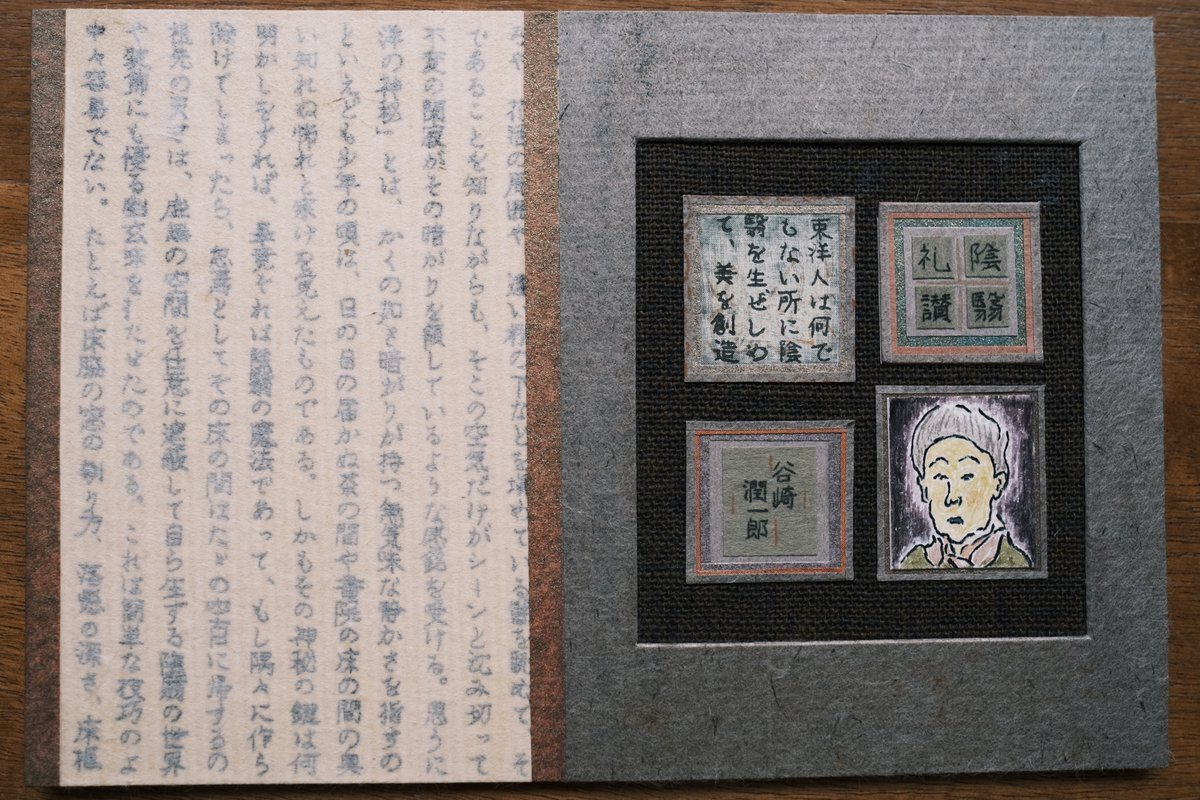 陰翳
礼讃
東洋人は何で
もない所に陰
翳を生ぜしめ
て、美を創造
谷崎
潤一郎
や、花活の周囲や、違い棚の下などを填めている闇を眺めて、そ
であることを知りながらも、そこの空気だけがシーンと沈み切って
不変の閑寂がその暗がりを領しているような感銘を受ける。思うに
洋の神秘」とは、かくの如き暗がりが持つ無気味な静かさを指すの
といえども少年の頃は、日の目の届かぬ茶の間や書院の床の間の奥
い知れぬ怖れと寒けを覚えたものである。しかもその神秘の鍵は何
明かしをすれば、畢竟それは陰翳の魔法であって、もし隅々に作ら
除けてしまったら、忽焉としてその床の間はたゞの空白に帰するの
祖先の天才は、虚無の空間を任意に遮蔽して自ら生ずる陰翳の世界
や装飾にも優る幽玄味を持たせたのである。これは簡単な技巧のよ
中々容易でない。たとえば床脇の窓の刳り方、落懸の深さ、床框